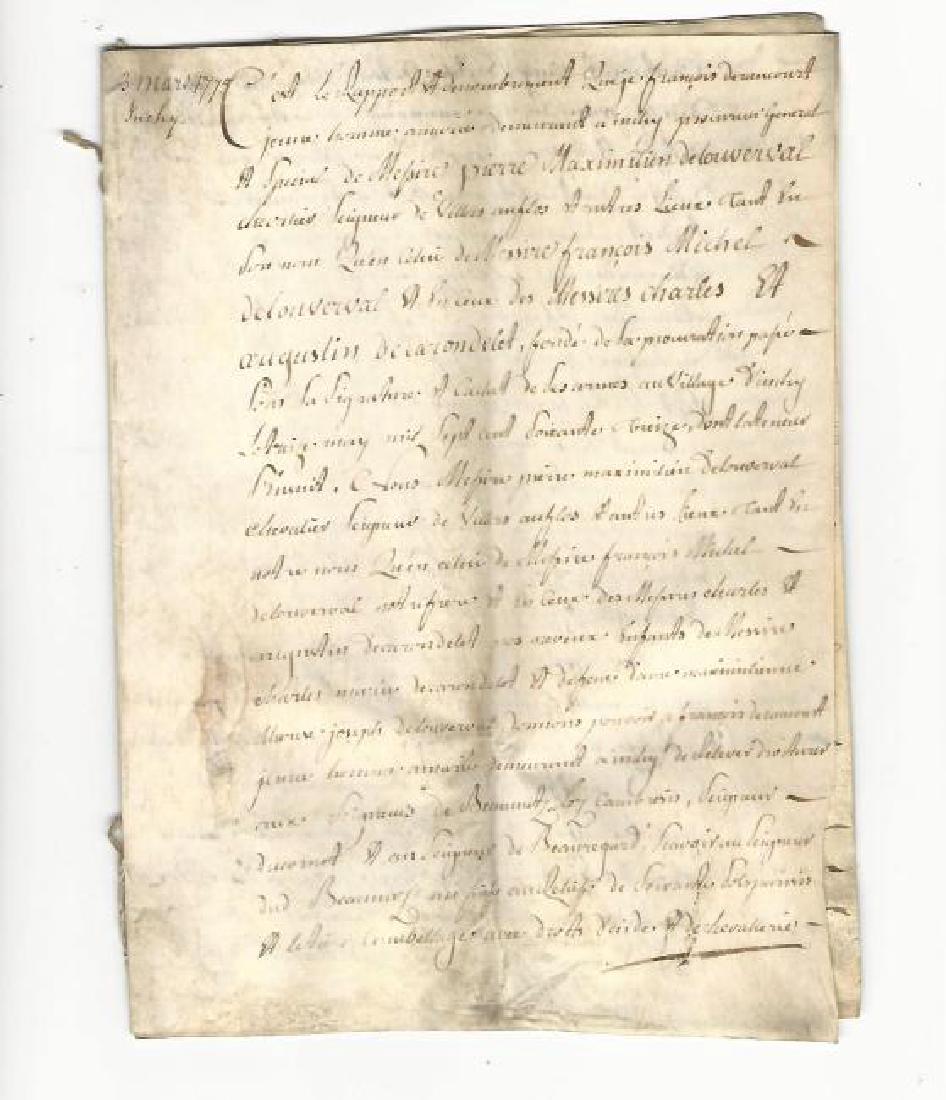 3 mars 1774
Inchy
C'est le Rapport et denombrement Que je françois deraucourt
jeune homme amarié demeurant a inchy procureur General
et special de Messire pierre Maximilien delouverval
chevalier seigneur de Villers auflos et autres Lieux tant en
son nom Qu'en celui de Messire françois Michel
delouverval et en ceux des Messires charles Et
augustin decarondelet, fondé de sa procuration passée
sous sa signature et cachet de ses armes au Village D'inchy
Le treize may mil sept cent soixante treize, dont la teneur
s'ensuit, Nous Messire pierre maximilien Delouverval
chevalier seigneur de Villers auflos et autres Lieux tant en
notre nom Qu'en celui de Messire françois Michel
delouverval notre frere et en ceux des Messires charles et
augustin decarondelet nos neveux Enfants de Messire
charles marie decarondelet et deffunte Dame maximilienne
Marie joseph delouverval donnons pouvoir a françois deraucourt
jeune homme amarié demeurant a inchy de relever droiturer
aux seigneurs de Beaumetz Lez Cambresis, seigneur
et au seigneur de Beauregard sçavoir au seigneur
Beaumetz un fief au Relief de soixante sols parisis
et le tiers cambellage avec droits D'aide et de chevallerie